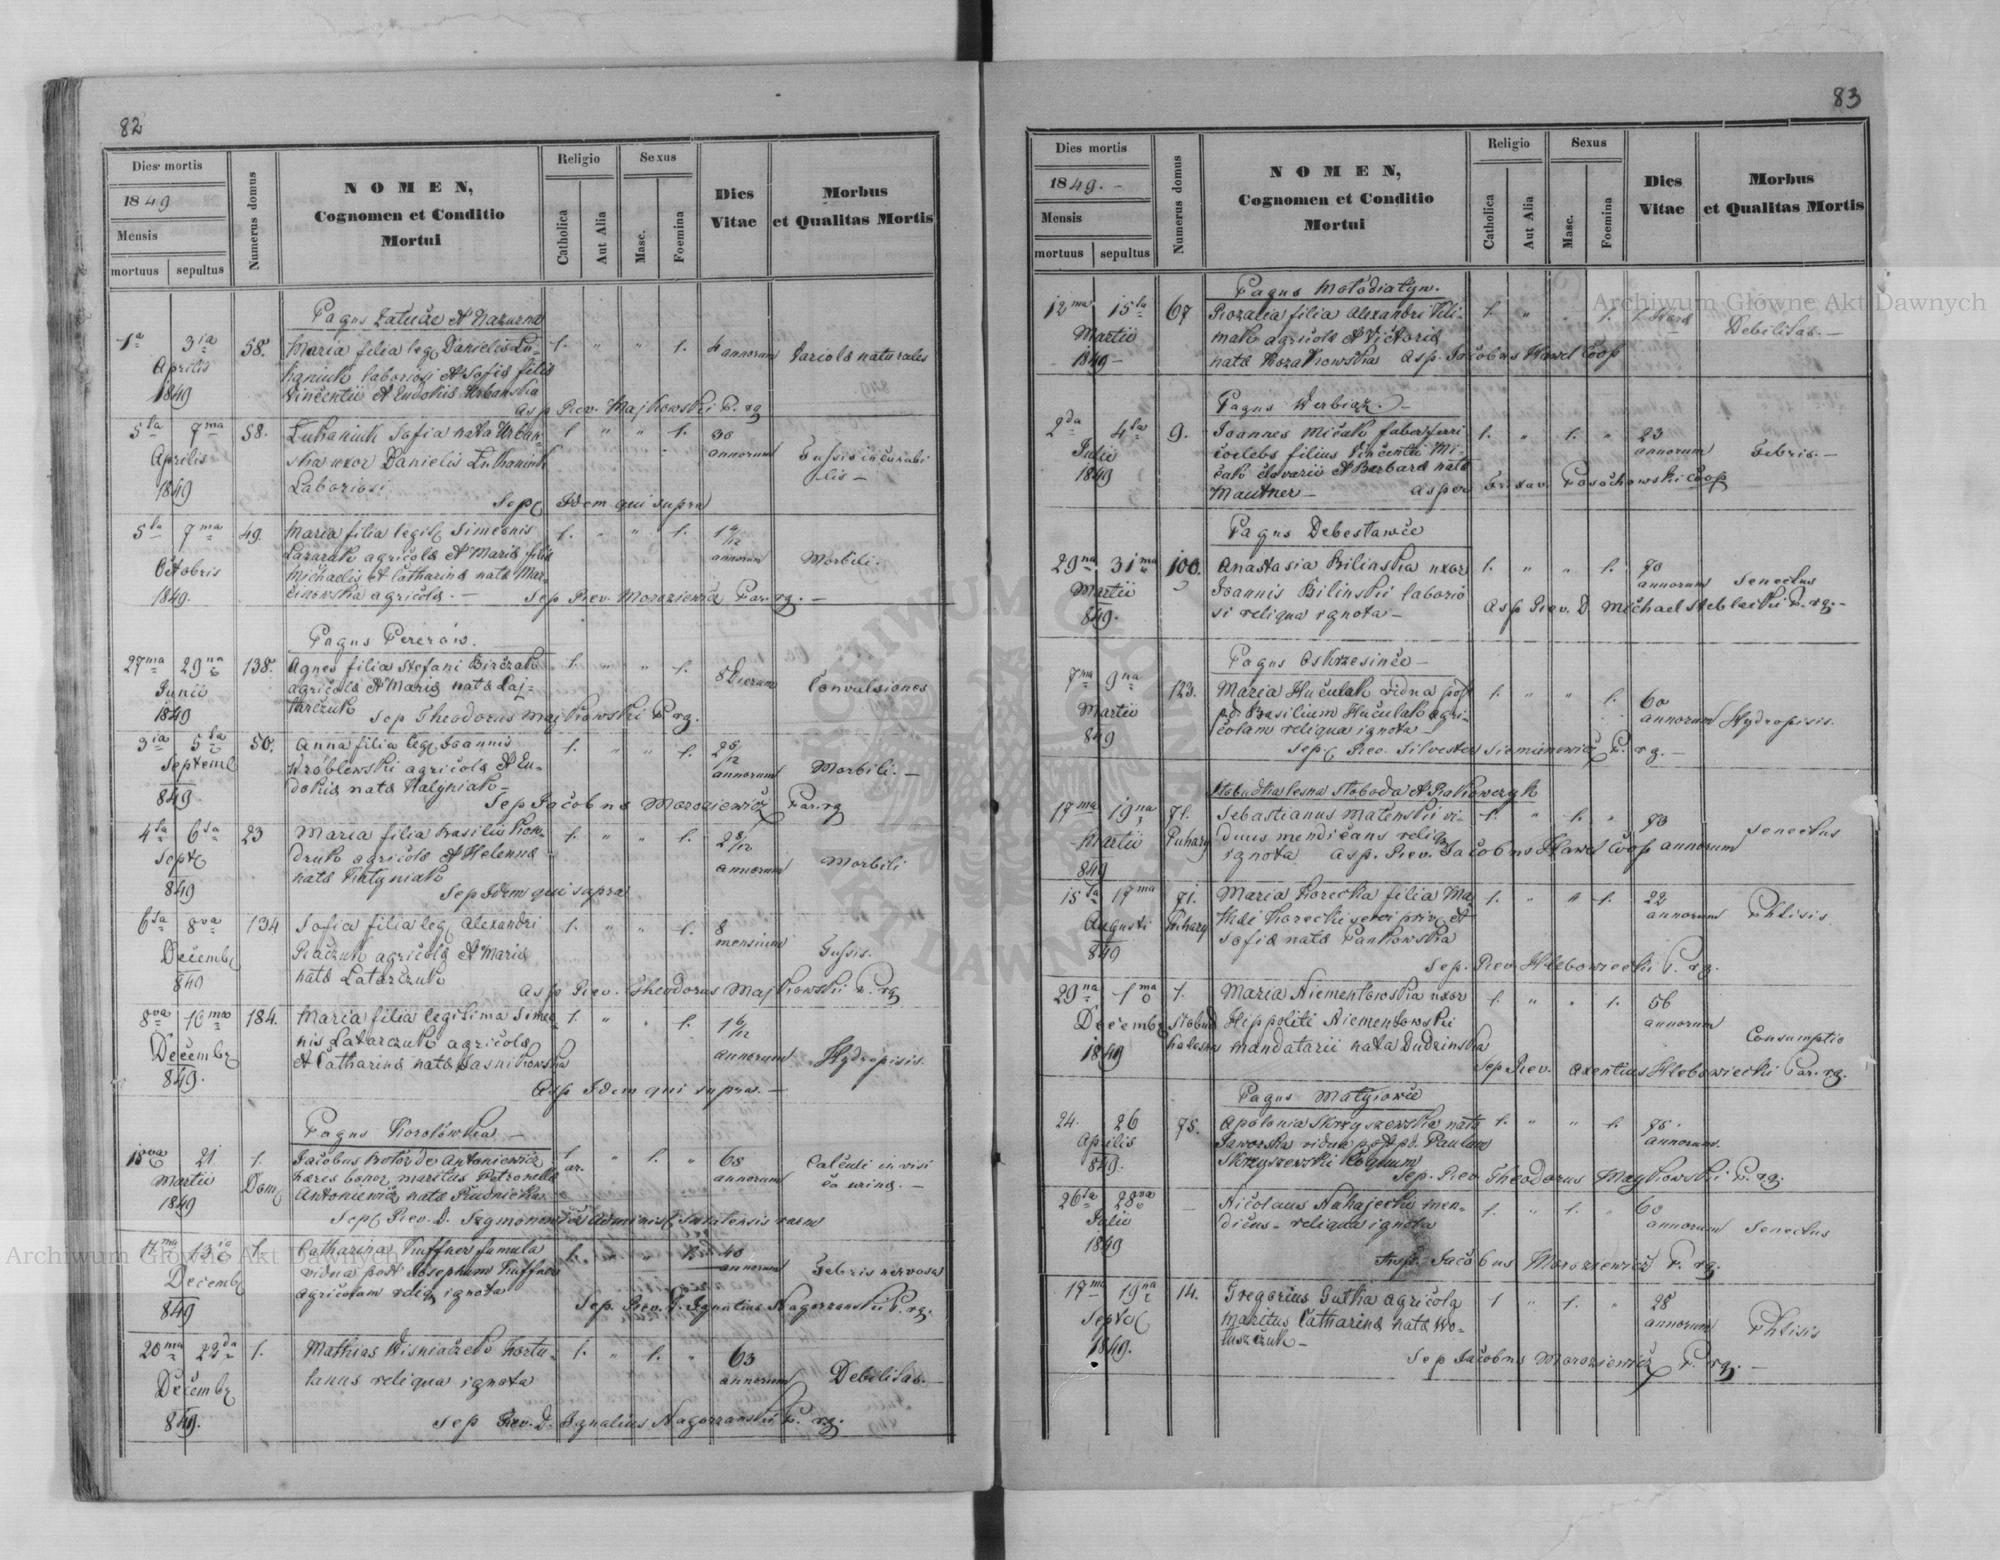 82
Dies mortis
1849
Mensis
mortuus sepultus
Numerus domus
NOMEN,
Cognomen et Conditio
Mortui
Religio
Catholica
Aut Alia
Sexus
Masc.
Foemina
Dies
Vitae
Morbus
et Qualitas Mortis
Pagus Zatucze et Kazurna
1a 3ia 58. Maria filia leg Danielis Lu- 1. " " 1. 4 annorum Variola naturales
Aprilis kaniuk laboriosi et Sofia filia
1849 Vincentii et Eudokiis Urbanska
Asp Rev. Majkowski P. rg
5ta 7ma 58. Lukaniuk Sofia nata Urban- 1 " " 1. 30
Aprilis ska uxor Danielis Lukaniuk annorum Tussis incurabi
1849 Laboriosi lis -
Sep Idem qui supra
5ta 7ma 49. Maria filia legit Simeonis 1. " " 1.
Octobris Lazaruk agricola et Maria filia annorum Morbili.
Michaelis et Catharina nata Mar-
1849. cinowska agricola. - Sep Rev. Moroziewicz Par. rg. -
Pagus Pererow.
27ma 29na 138. Agnes filia Stefani Birczak 1. " " 1.
Junii agricola et Maria nata Laj- 8 Dierum Convulsiones
1849 tarczuk Sep Theodorus Majkowski P. rg.
3ia 5ta 50. Anna filia leg Joannis 1. " " 1.
Septemb Wroblewski agricola et Eu- annorum Morbili. -
849 dokia nata Halyniak -
Sep Jacobus Moroziewicz Par. rg
4ta 6ta 23 Maria filia Basilii Kon- 1. " " 1. 2 8/12
Sept druk agricola et Helenna - annorum Morbili
849 nata Hatyniak
Sep Idem qui supra
6ta 8va 134 Sofia filia leg Alexandri 1. " " 1. 8
Decemb Raczuk agricola et Maria mensium Tussis.
849 nata Latarczuk
Asp Rev. Theodorus Majkowski P. rg
8va 10ma 184. Maria filia legitima Simeo 1. " " 1. 1 6/12
Decemb nis Latarczuk agricola annorum Hydropisis.
849. et Catharina nata Jasnikowska
Asp Idem qui supra. -
Pagus Korolowka -
18va 21 1. Jacobus Botoz de Antoniewicz 1 " 1. " 68 Calculi in visi
Martii Dom haeres bonor maritus Petronella ar. annorum ca urina. -
1849 Antoniewicz nata Rudnicka
Sep Rev. D. Szymonowicz Administ
Catharina Kuffner famula 40
Decemb vidua post Josephum Kuffner annorum Febris nervosa
849 agricolam reliq ignota
Sep. Rev. D. Ignatius Nagorzanski P. rg.
20ma 22da 1. Mathias Wisniaczek hortu- 1. " 1. " 63
Decemb lanus reliqua ignota annorum Debilitas.
849.
Sep Rev. D. Ignatius Nagorzanski P. rg.
83
Dies mortis
1849. -
Mensis
mortuus sepultus
Numerus domus
NOMEN,
Cognomen et Conditio
Mortui
Religio
Catholica
Aut Alia
Sexus
Masc.
Foemina
Dies
Vitae
Morbus
et Qualitas Mortis
Pagus Molodiatyn.
12ma 15ta 67 Rozalia filia Alexandri Kli- 1. " . 1. Debilitas. -
Martii mak agricola et Victoria
1849 - nata Kozakowska Asp Jacobus Hawel Coop
Pagus Werbiąz. -
2da 4ta 9. Joannes Micak faber ferri 1. " 1. " 23
Julii coelebs filius Vincentii Mi- annorum Febris. -
1849 cak clavarii et Barbara nata
Mautner - Coop
Pagus Debeslawce
29na 31ma 100. Anastasia Bilinska uxor 1. " " 1. 70
Martii Joannis Bilinski laborio annorum Senectus
849. si reliqua ignota - Asp Rev. D. Michael Steblecki P. rg. -
Pagus Oskrzesince -
7ma 9na 123. Maria Huculak vidua post 1. " " 1. 60
Martii pd. Basilium Huculak agri- annorum Hydropisis.
849 colam reliqua ignota -
Sep Rev. Silvester Siemianowicz P. rg. -
Slobudka lesna Sloboda et Rakowczyk
17ma 19na 71. Sebastianus Matenski vi- 1. " 1. " 70
Martii Puhary duus mendicans reliq annorum Senectus
849 ignota Asp. Rev. Jacobus Hawel Coop
15ta 17ma 71. Maria Korecka filia Ma 1. " " 1. 22
Augusti Puhary thei Korecki servi priv et annorum Phtisis
849 Sofia nata Pankowska
Sep. Rev. Hlebowiecki P. rg.
29na 1ma 1. Maria Niementowska uxor 1. " " 1. 56
Decemb Slobud Hippoliti Niementowski annorum Consumptio
1849 ka lesna mandatarii nata Dudzinska
Sep Rev. Axentius Hlebowiecki Par. rg.
Pagus Matyiowce
24. 26 78. Apolonia Skrzyszewska nata 1. " " 1. 78.
Aprilis Jaworska vidua post pd. Paulum annorum.
849. Skrzyszewski
Sep. Rev Theodorus Maykowski P. rg.
26ta 28va - Nicolaus Nahajecki men- 1. " 1. " 60
Julii dicus - reliqua ignota annorum Senectus
1849
Jacobus Moroziewicz P. rg.
17ma 19na 14. Gregorius Gutka agricola 1 " 1. " 28
Sept maritus Catharina nata Wo- annorum Phtisis
1849. tuszczuk -
Sep Jacobus Moroziewicz P. rg. -
Archiwum Główne Akt Dawnych
Archiwum Główne Akt Dawnych
ARCHIWUM GŁÓWNE AKT DAWNYCH